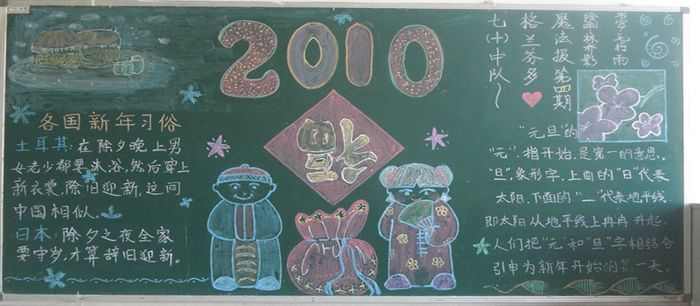 2010
各国新年习俗
土耳其:在除夕晚上男
女老少都要沐浴,然后穿上
新衣裳,除旧迎新,这同
中国相似。
日本:除夕之夜全家
要守岁,才算辞旧迎新。
福
魔法报第四期
格兰芬多
七(十)中队
"元旦"的
"元",指开始,是第一的意思。
"旦",象形字,上面的"日"代表
太阳,下面的"一"代表地平线
即太阳从地平线上冉冉升起。
人们把"元"和"旦"字相结合
引申为新年开始的第一天。